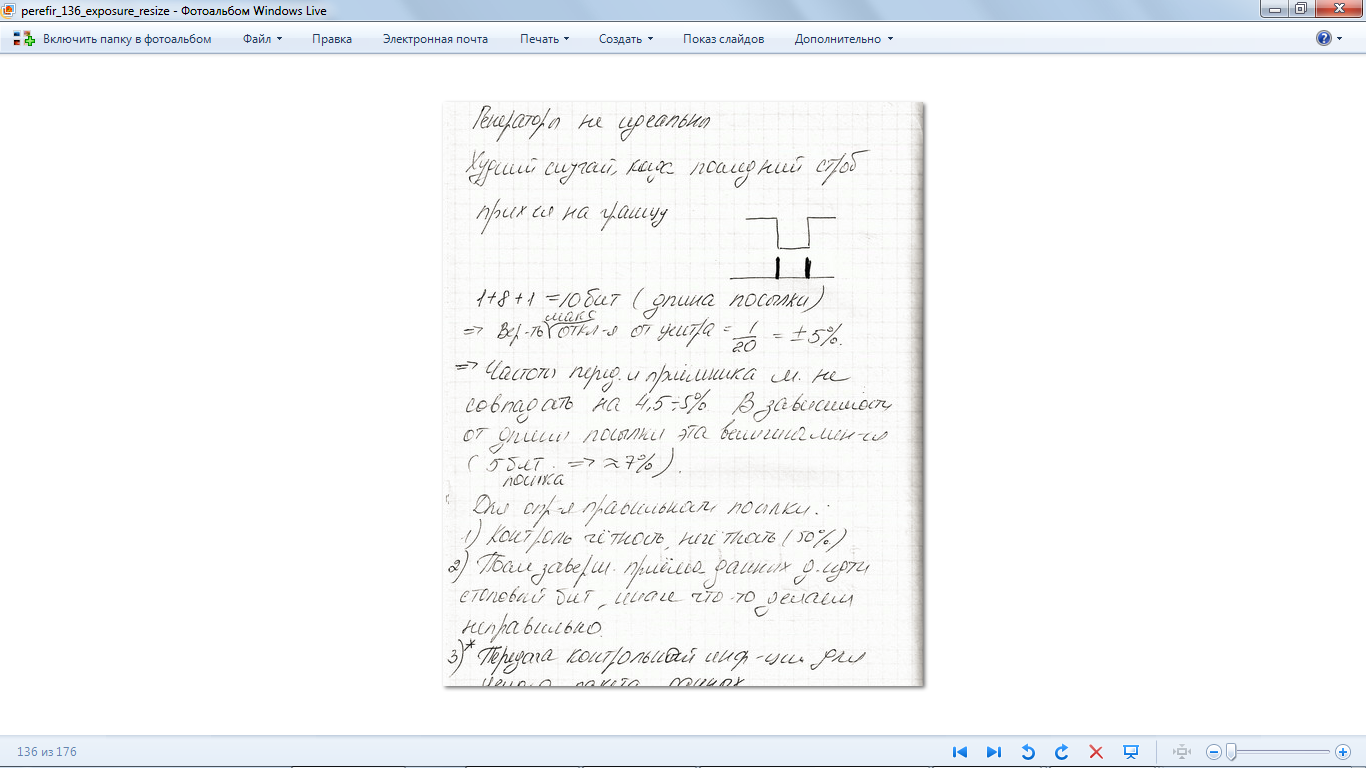 perefir_136_exposure_resize - Фотоальбом Windows Live
Включить папку в фотоальбом Файл Правка Электронная почта Печать Создать Показ слайдов Дополнительно
Генераторы не идеальны
Худший случай, когда последний строб
прих-ся на границу
1+8+1 =10 бит (длина посылки)
макс
=> Вер-ть откл-я от центра = 1/20 = ±5%.
=> Частоты перед. и приёмника м. не
совпадать на 4,5÷5% В зависимости
от длины посылки эта величина мен-ся
(5 бит. => ≈7%).
посылка
Для опр-я правильности посылки:
1) Контроль чётность, нечётность (50%)
2) После заверш. приёма данных д. идти
стоповый бит, иначе что-то делаем
неправильно.
3)* Передача контрольной инф-ции для
пакета данных
136 из 176